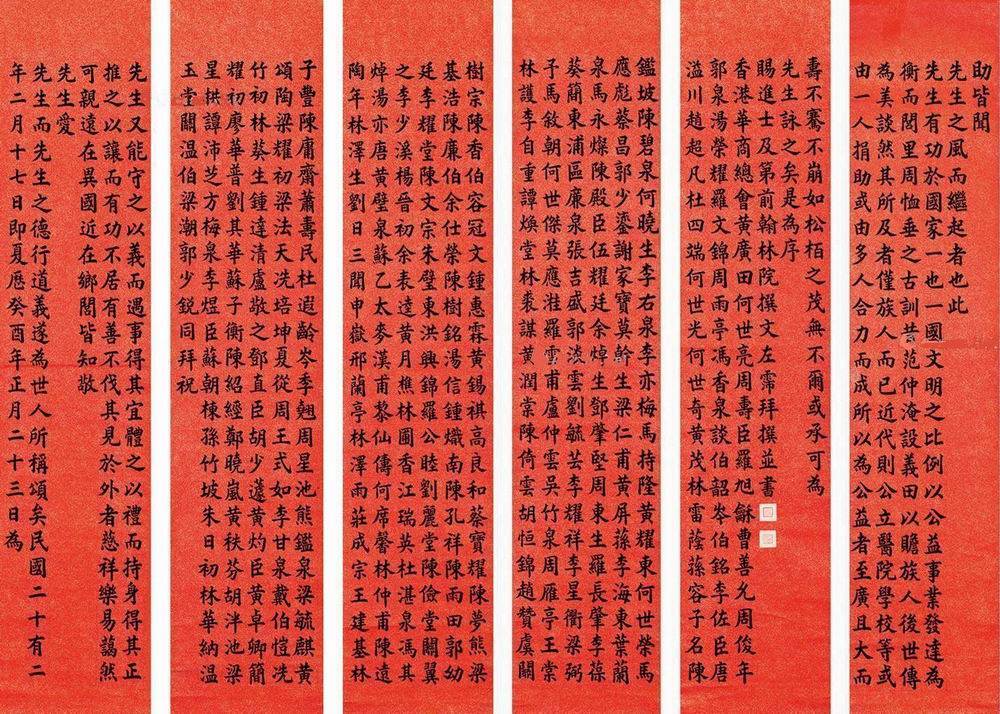 助皆聞
先生之風而繼起者也此
先生有功於國家一也一國文明之比例以公益事業發達為
衡而閭里周恤垂之古訓昔范仲淹設義田以贍族人後世傳
為美談然其所及者僅族人而已近代則公立醫院學校等或
由一人捐助或由多人合力而成所以為公益者至廣且大而
壽不騫不崩如松栢之茂無不爾或承可為
先生詠之矣是為序
賜進士及第前翰林院撰文左霈拜撰並書
香港華商總會黃廣田何世亮周壽臣羅旭龢曹善允周俊年
郭泉湯榮耀羅文錦周雨亭馮香泉談伯韶岑伯銘李佐臣唐
溢川趙超凡杜四端何世光何世奇黃茂林雷蔭蓀容子名陳
鑑坡陳碧泉何曉生李右泉李亦梅馬持隆黃耀東何世榮馬
應彪蔡昌郭少鎏謝家寶莫幹生梁仁甫黃屏蓀李海東葉蘭
泉馬永燦陳殿臣伍耀廷余焯生鄧肇堅周東生羅長肇李葆
葵簡東浦區廉泉張吉盛郭淡雲劉毓芸李耀祥李星衢梁弼
予馬敘朝何世傑莫應溎羅雪甫盧仲雲吳竹泉周雁亭王棠
林護李自重譚煥堂林裘謀黃潤棠陳倚雲胡恒錦趙贊虞關
樹宗陳香伯容冠文鍾惠霖黃錫祺高良和蔡寶耀陳夢熊梁
基浩陳廉伯余仕榮陳樹銘湯信鍾熾南陳孔祥陳雨田郭幼
廷李耀堂陳文宗朱璧東洪興錦羅公睦劉麗堂陳儉堂關翼
之李少溪楊晉初余表逵黃月樵林圃香江瑞英杜湛泉馮其
焯湯亦唐黃璧泉蘇乙太麥漢甫黎仙儔何席馨林仲甫陳遠
陶年林澤生劉日三聞申嶽邢蘭亭林澤雨莊成宗王建基林
子豐陳庸齋蕭壽民杜遐齡岑李翹周星池熊鑑泉梁毓麒黃
頌陶梁耀初梁法天冼培坤夏從周王式如李甘泉戴伯愷冼
竹初林葵生鍾達清盧敬之鄧直臣胡少蘧黃灼臣黃卓卿簡
耀初廖華普劉其華蘇子衡陳紹經鄭曉嵐黃秩芬胡泮池梁
星拱譚沛芝方梅泉李煜臣蘇朝棟孫竹坡朱日初林華納温
玉堂關温伯梁潮郭少銳同拜祝
先生又能守之以義而遇事得其宜體之以禮而持身得其正
推之以讓而有功不居有善不伐其見於外者慈祥樂易藹然
可親遠在異國近在鄉閭皆知敬
先生愛
先生而先生之德行道義遂為世人所稱頌矣民國二十有二
年二月十七日即夏厯癸酉年正月二十三日為